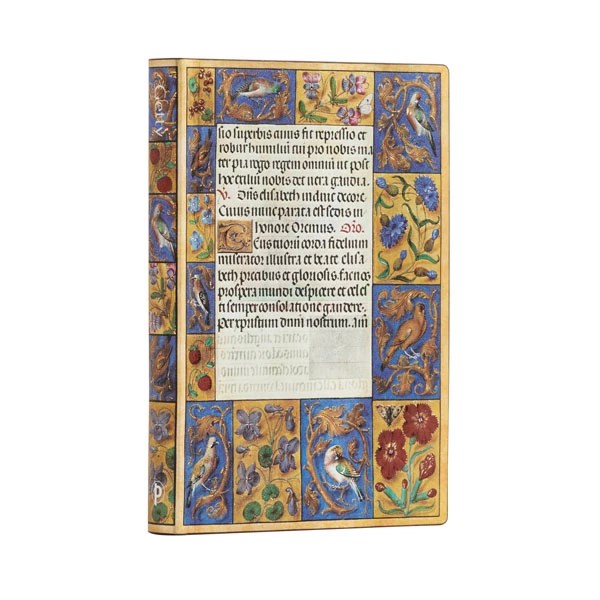 Getty
sio superbis cuius fit repressio et
robur humilium tui pro nobis ma
ter pia rogo regem omnium ut post
hoc exilium nobis det vera gaudia.
V. Dñs elisabeth induit decore
Cuius nunc parata est sedis in
honore Oremus. Oro.
Tuorum corda fidelium
miserator illustra et beate elisa
beth precibus et gloriosis. fac nos
prospera mundi despicere et celes
ti semper consolatione gaudere.
Per xpristum dnm nostrum. am
P